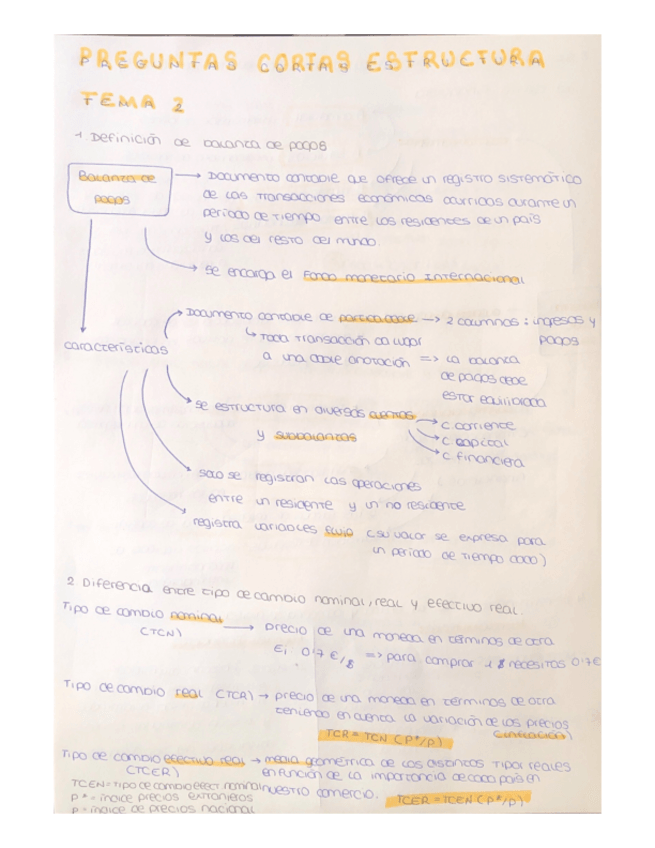 PREGUNTAS CORTAS ESTRUCTURA
TEMA 2
1 Definición de balanza de pagos
Balanza de → Documento contable que ofrece un registro sistemático
pagos de las transacciones económicas ocurridas durante un
período de tiempo entre los residentes de un país
y los del resto del mundo.
→ se encarga el Fondo Monetario Internacional
Documento contable de partida doble → 2 columnas : ingresos y
pagos
características ↳ Toda transacción da lugar
a una doble anotación => la balanza
de pagos debe
estar equilibrada
se estructura en diversas cuentas → c corriente
y subbalanzas → c capital
→ c financiera
solo se registran las operaciones
entre un residente y un no residente
registra variables flujo (su valor se expresa para
un período de tiempo dado)
2 Diferencia entre tipo de cambio nominal, real y efectivo real.
Tipo de cambio nominal → precio de una moneda en términos de otra
(TCN) Ej 0'7 €/$ => para comprar 1 $ necesitas 0'7€
Tipo de cambio real (TCR) → precio de una moneda en términos de otra
teniendo en cuenta la variación de los precios
(inflación)
TCR = TCN (P*/P)
Tipo de cambio efectivo real → media geométrica de los distintos tipos reales
(TCER) en función de la importancia de cada país en
TCEN = tipo de cambio efect nominal nuestro comercio. TCER = TCEN (P*/P)
P* = índice precios extranjeros
P = índice de precios nacional